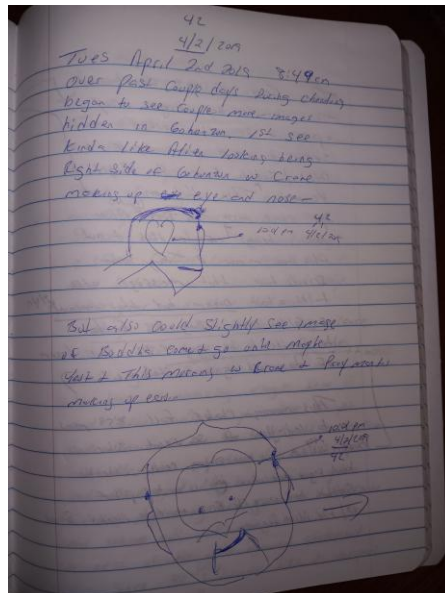 42
4/2/2019
Tues April 2nd 2019 8:49
over past couple days during chanting
began to see couple more images
hidden in Gohonzon, 1st see
kinda like Alien looking being
Right side of Gohonzon w Crane
making up eye and nose -
42
4/2/2019
But also could slightly see image
of Buddha come & go until
& This morning w Crane &
making up
pm
4/2/2019
42